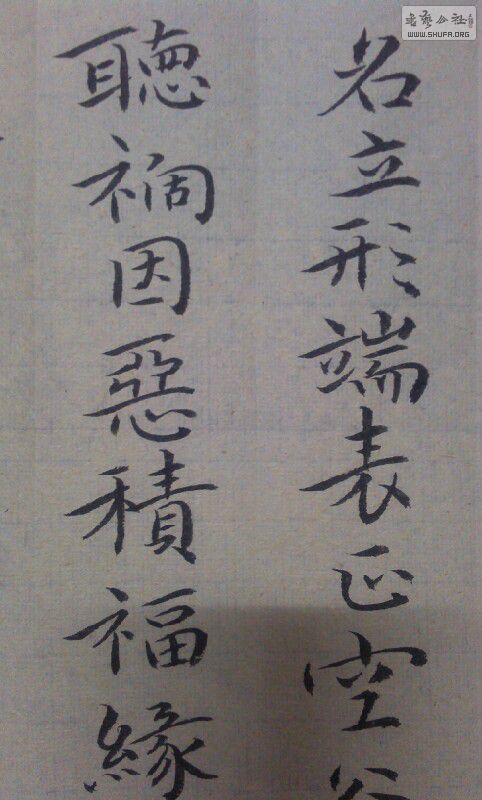 名立形端表正空谷
聽禍因惡積福緣
書藝公社
WWW.SHUFA.ORG